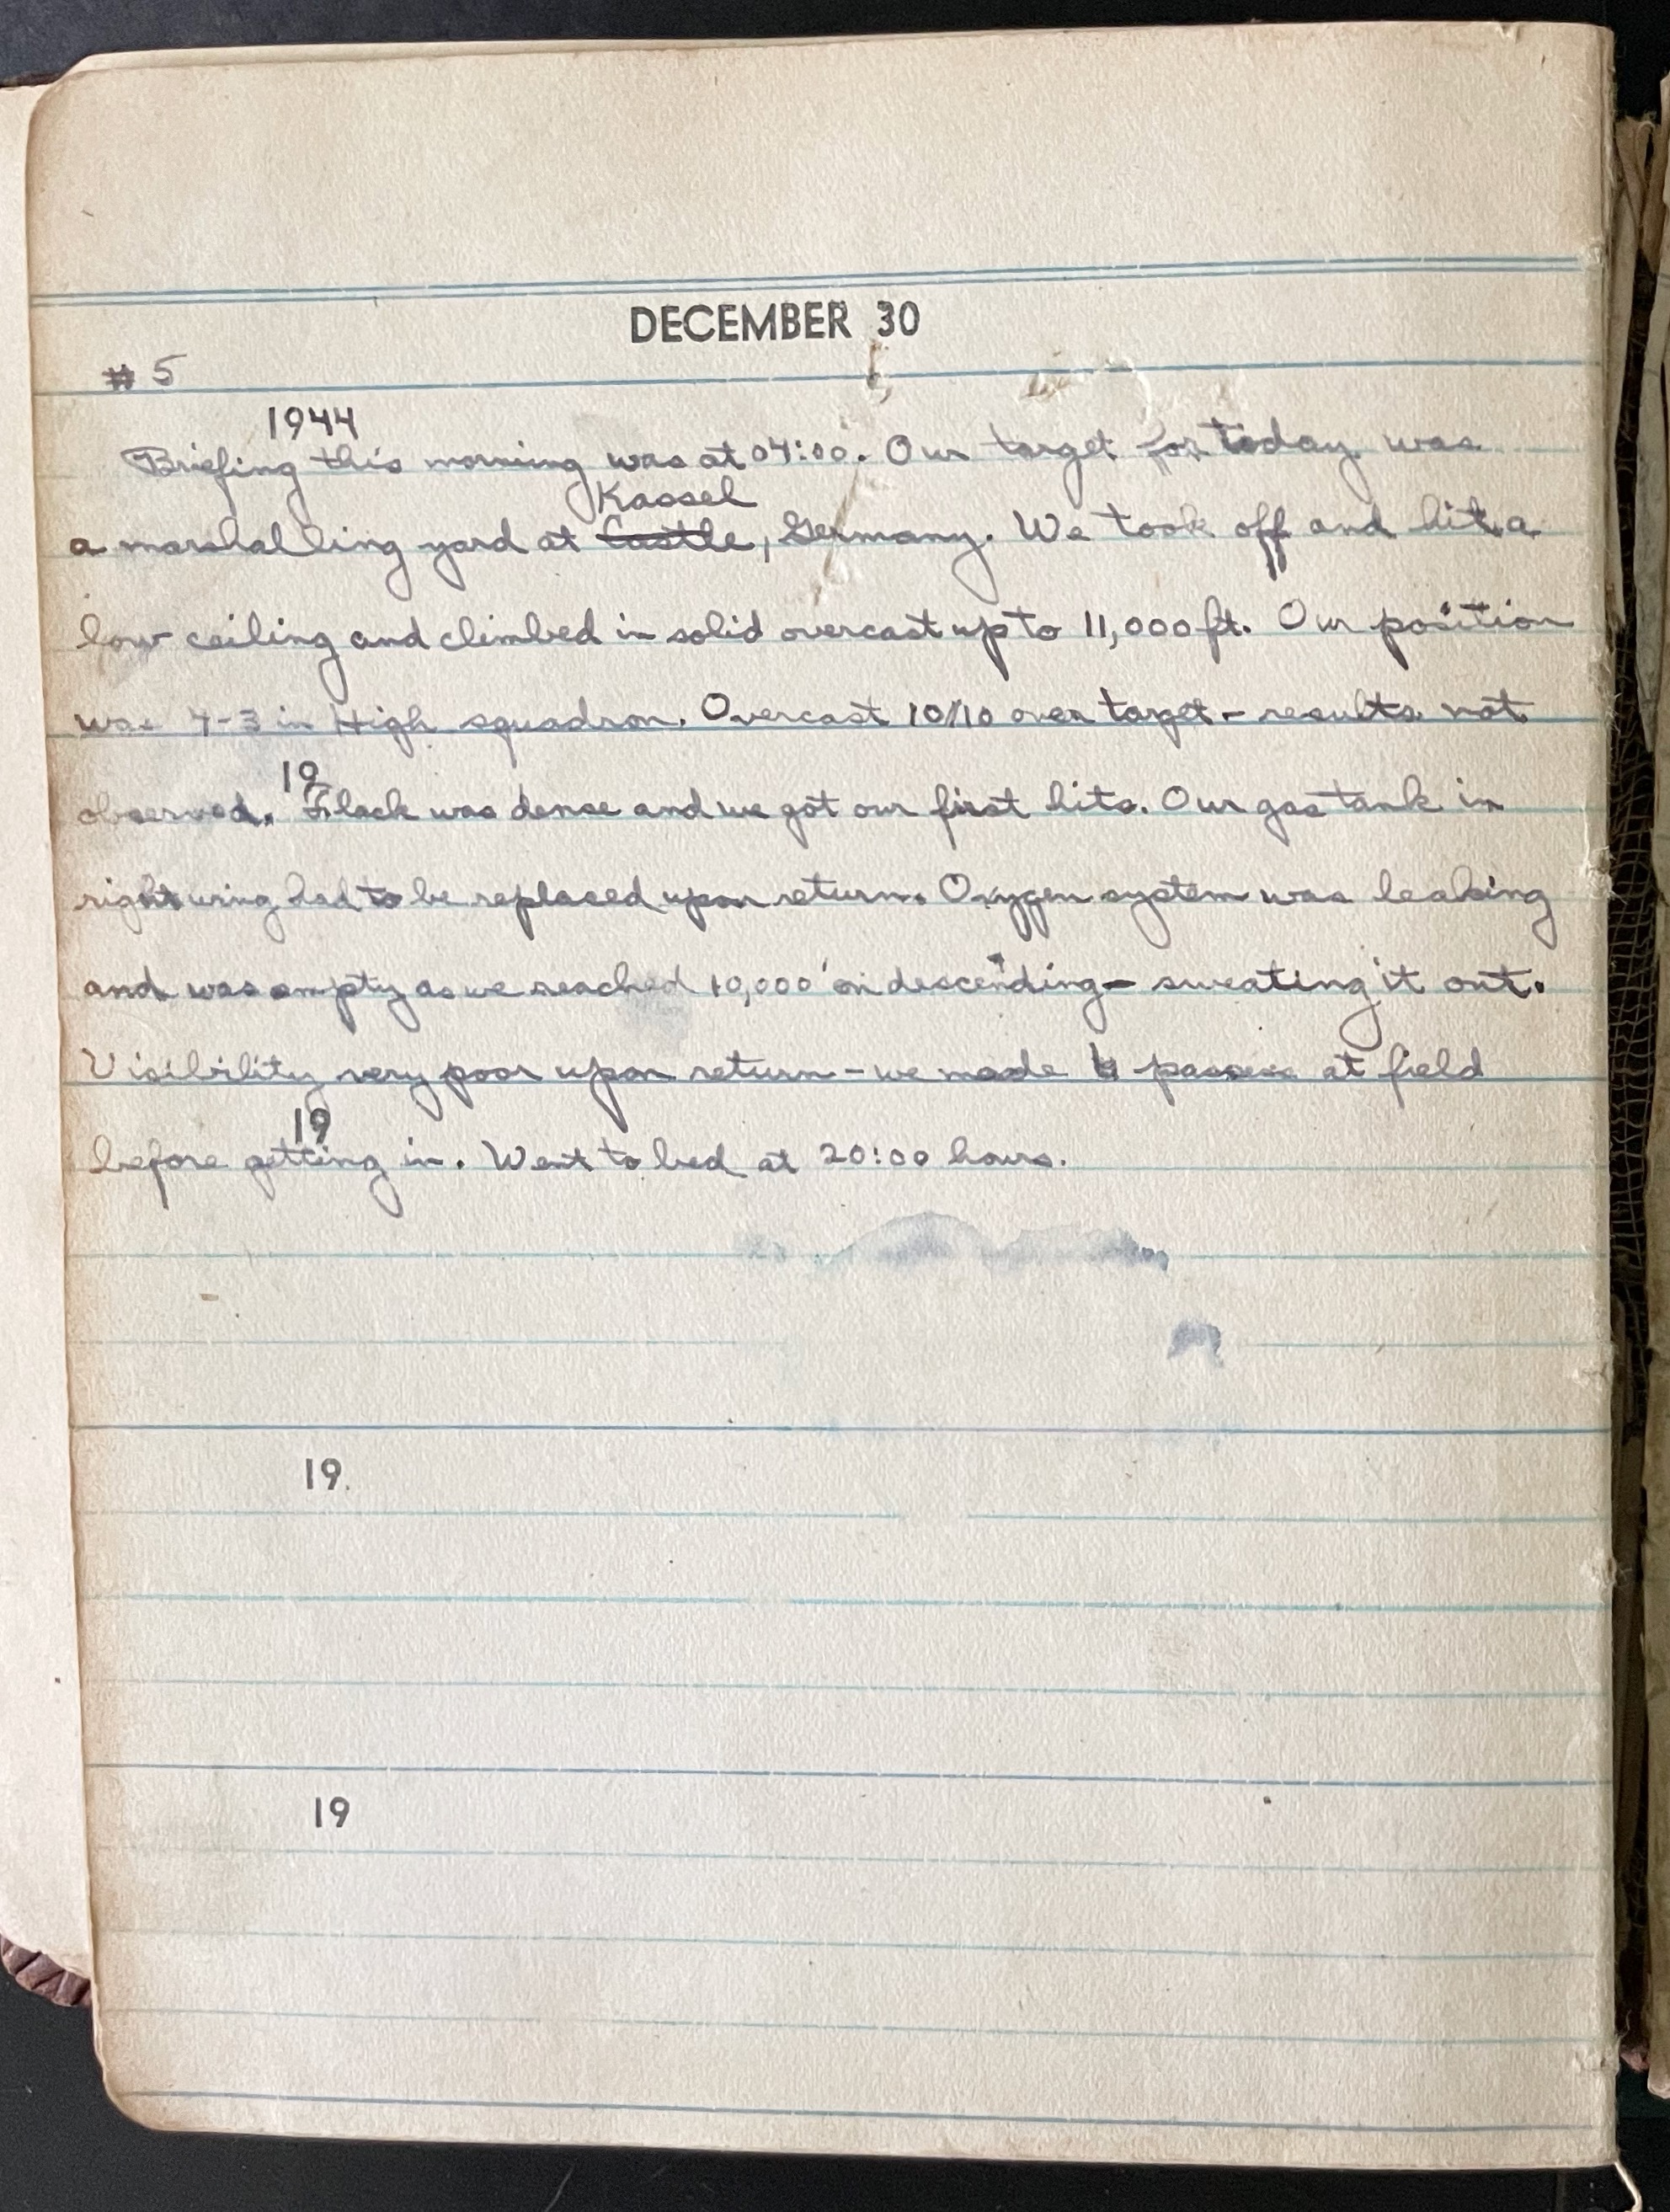 DECEMBER 30
# 5
1944
Briefing this morning was at 04:00. Our target for today was
Kassel
a marshalling yard at Castle, Germany. We took off and hit a
low ceiling and climbed in solid overcast up to 11,000 ft. Our position
was 4-3 in High squadron. Overcast 10/10 over target - results not
19
observed. Flack was dense and we got our first hits. Our gas tank in
right wing had to be replaced upon return. Oxygen system was leaking
and was empty as we reached 10,000' on descending - sweating it out.
Visibility very poor upon return - we made 4 passes at field
19
before getting in. Went to bed at 20:00 hours.
19
19